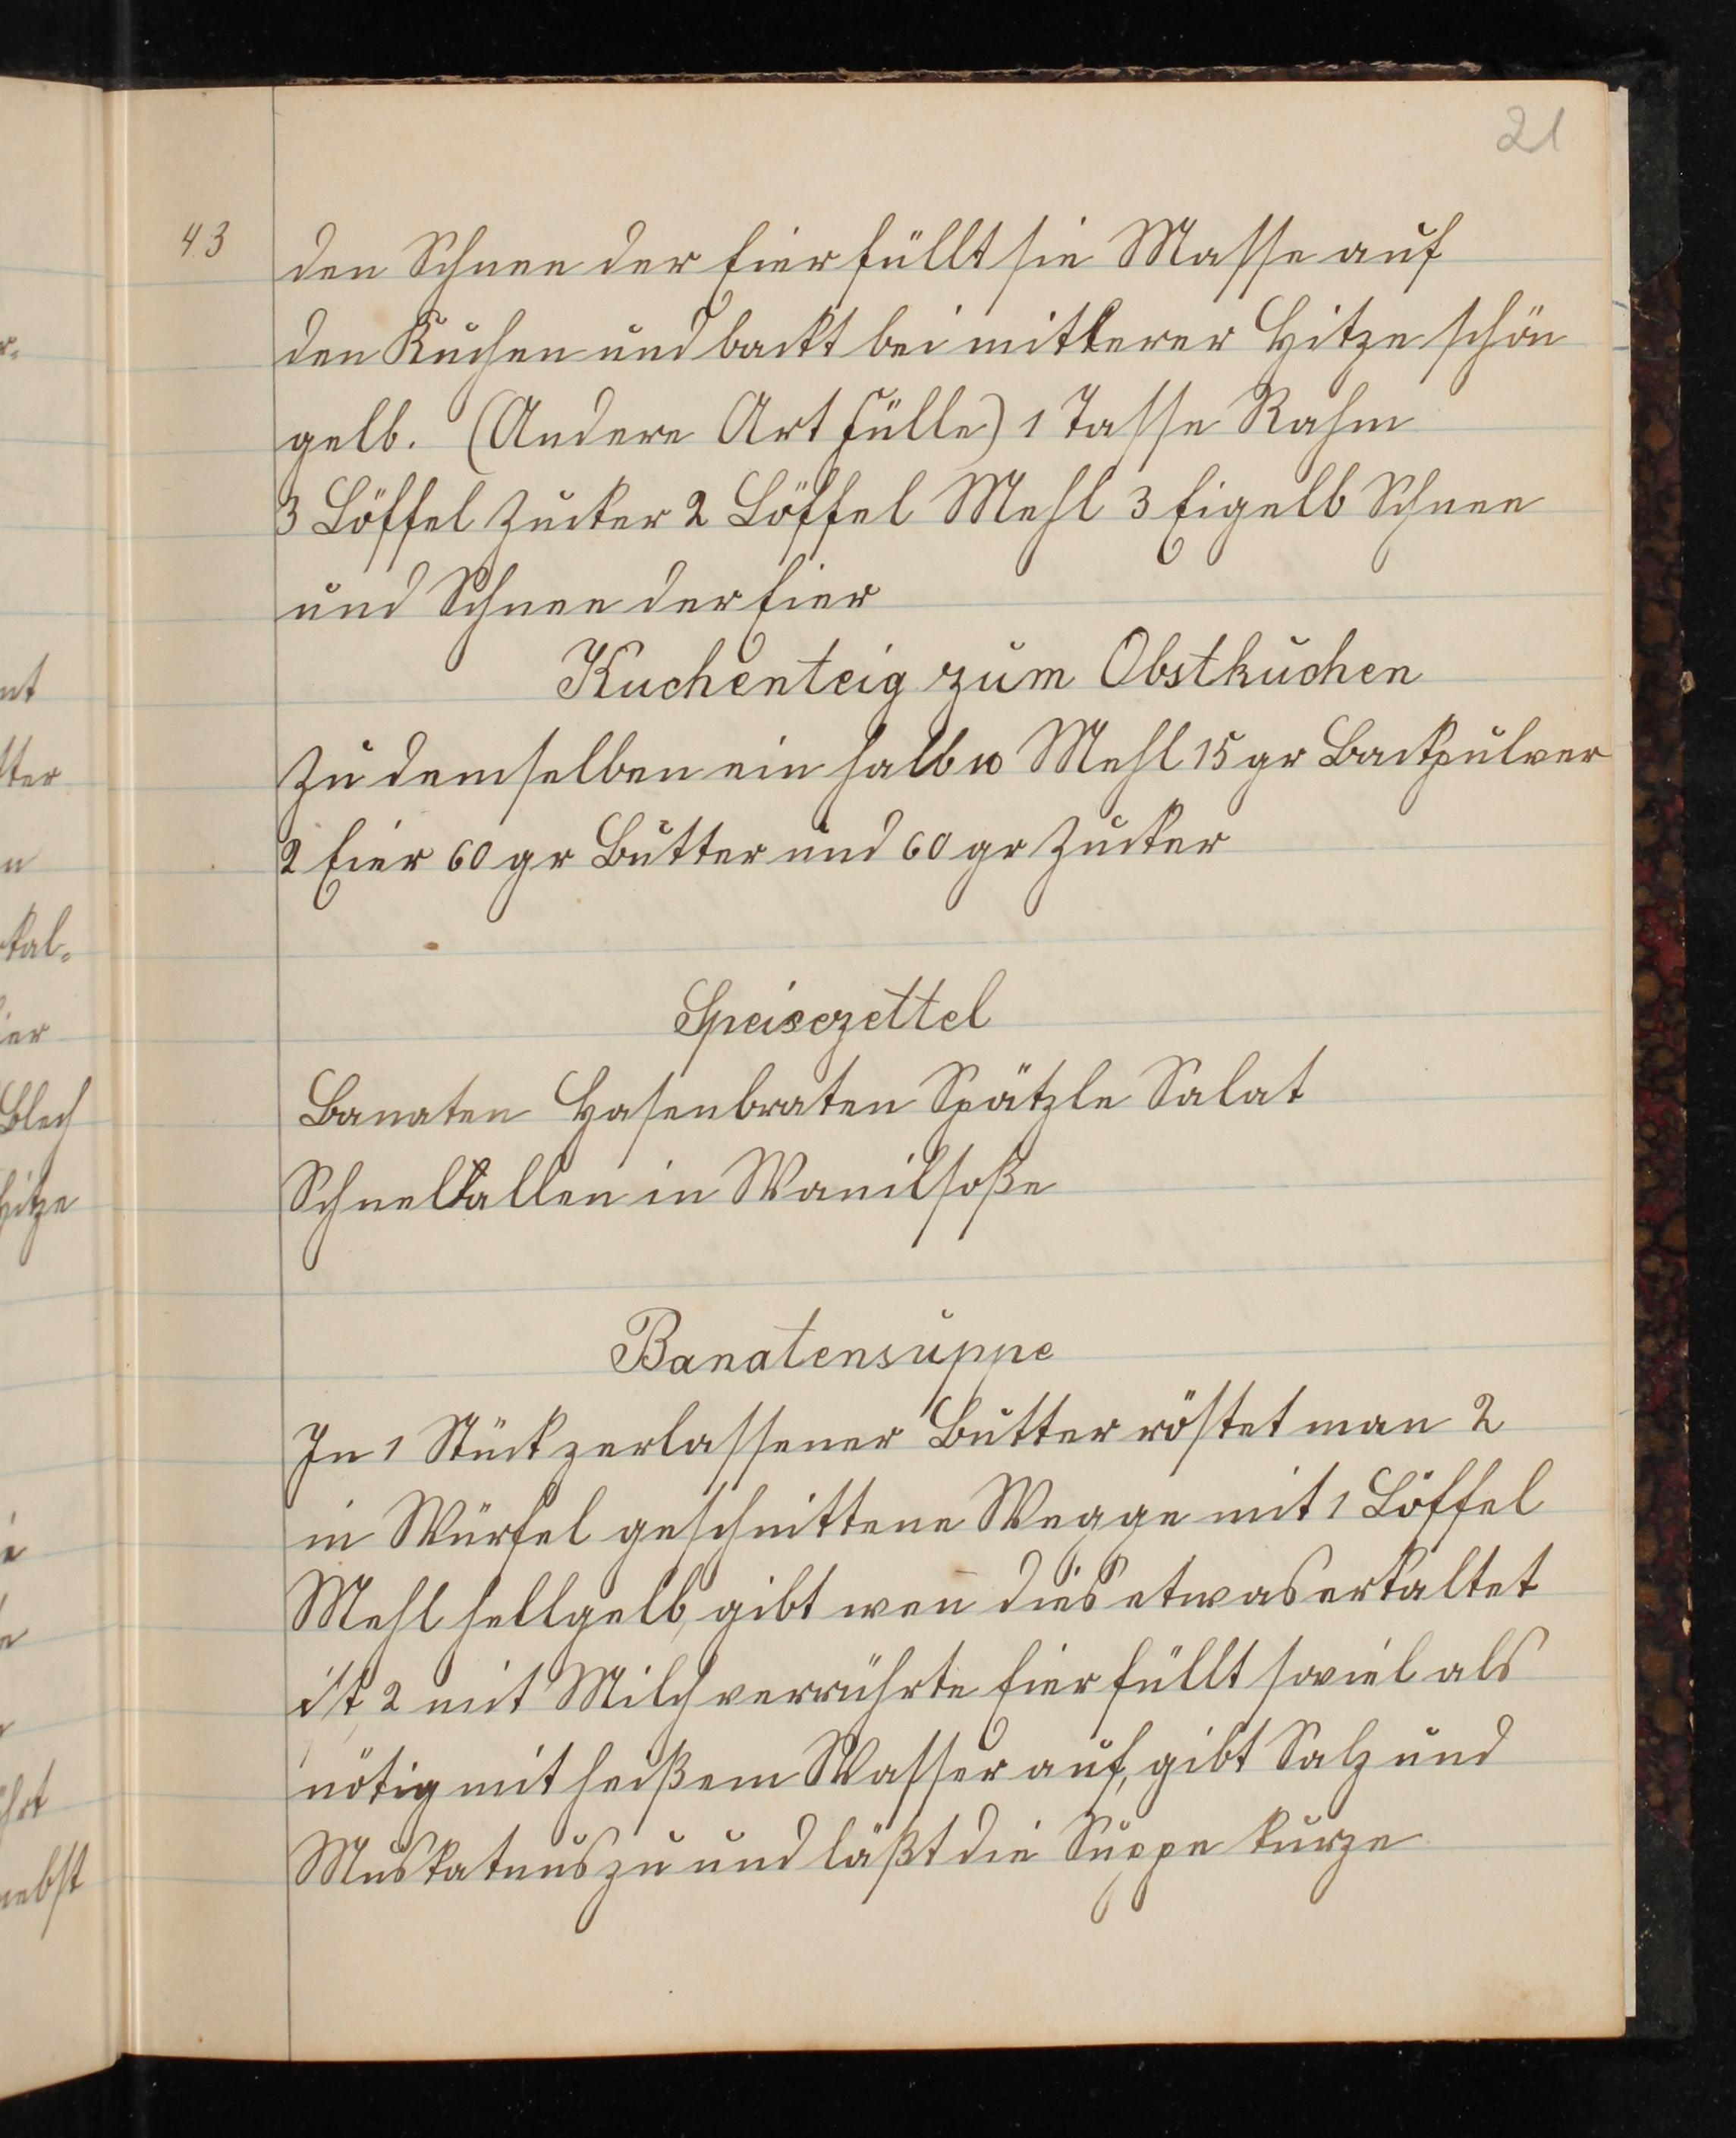 21
43
den Schnee der Eier füllt sie Masse auf
den Kuchen und backt bei mittlerer Hitze schön
gelb. (Andere Art Fülle) 1 Tasse Rahm
3 Löffel Zucker 2 Löffel Mehl 3 Eigelb Schnee
und Schnee der Eier
Kuchenteig zum Obstkuchen
Zu demselben ein halb ℔ Mehl 15 gr Backpulver
2 Eier 60 gr Butter und 60 gr Zucker
Speisezettel
Banaten Hasenbraten Spätzle Salat
Schneeballen in Wanilsoße
Banatensuppe
In 1 Stück zerlassener Butter röstet man 2
in Würfel geschnittene Wegge mit 1 Löffel
Mehl hellgelb, gibt wen̄ dies etwas erkaltet
ist, 2 mit Milch verrührte Eier füllt soviel als
nötig mit heißem Wasser auf, gibt Salz und
Muskatnus zu und läßt die Suppe kurze